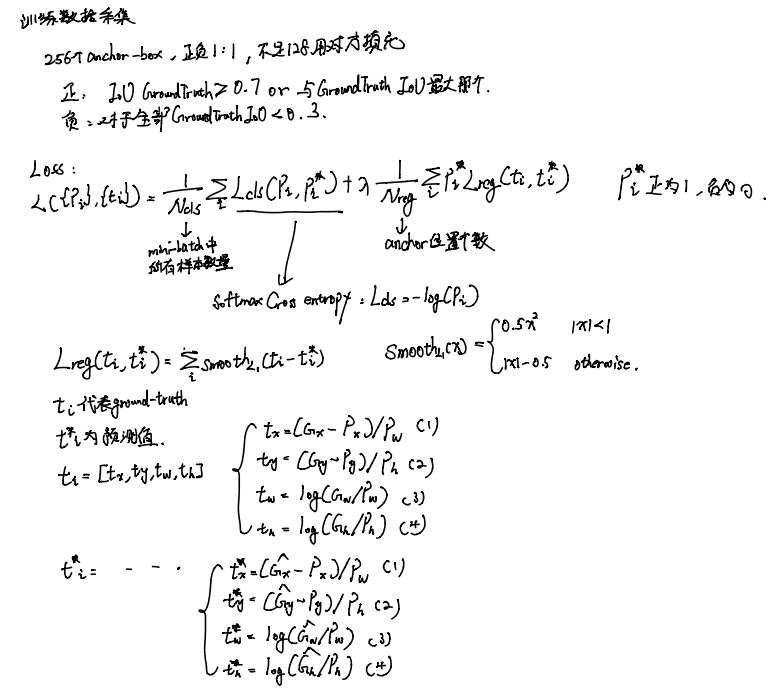 训练数据采集
256个anchor-box，正负1:1，不足128用对方填充
正：IoU GroundTruth ≥ 0.7 or 与GroundTruth IoU最大那个.
负：对于全部GroundTruth IoU < 0.3.
Loss:
L({Pi},{ti}) = 1/Ncls Σi Lcls(Pi, Pi*) + λ 1/Nreg Σi Pi* Lreg(ti, ti*) Pi* 正为1，负为0.
mini-batch中所有样本数量
anchor位置个数
Softmax Cross entropy: Lcls = -log(Pi)
Lreg(ti, ti*) = Σi smoothL1(ti - ti*)
SmoothL1(x) = { 0.5x² |x|<1
|x|-0.5 otherwise.
ti代表ground-truth
t*i为预测值.
ti = [tx, ty, tw, th]
tx = (Gx - Px)/Pw (1)
ty = (Gy - Py)/Ph (2)
tw = log(Gw/Pw) (3)
th = log(Gh/Ph) (4)
t*i = - - ·
t*x = (Ĝx - Px)/Pw (1)
t*y = (Ĝy - Py)/Ph (2)
t*w = log(Ĝw/Pw) (3)
t*h = log(Ĝh/Ph) (4)